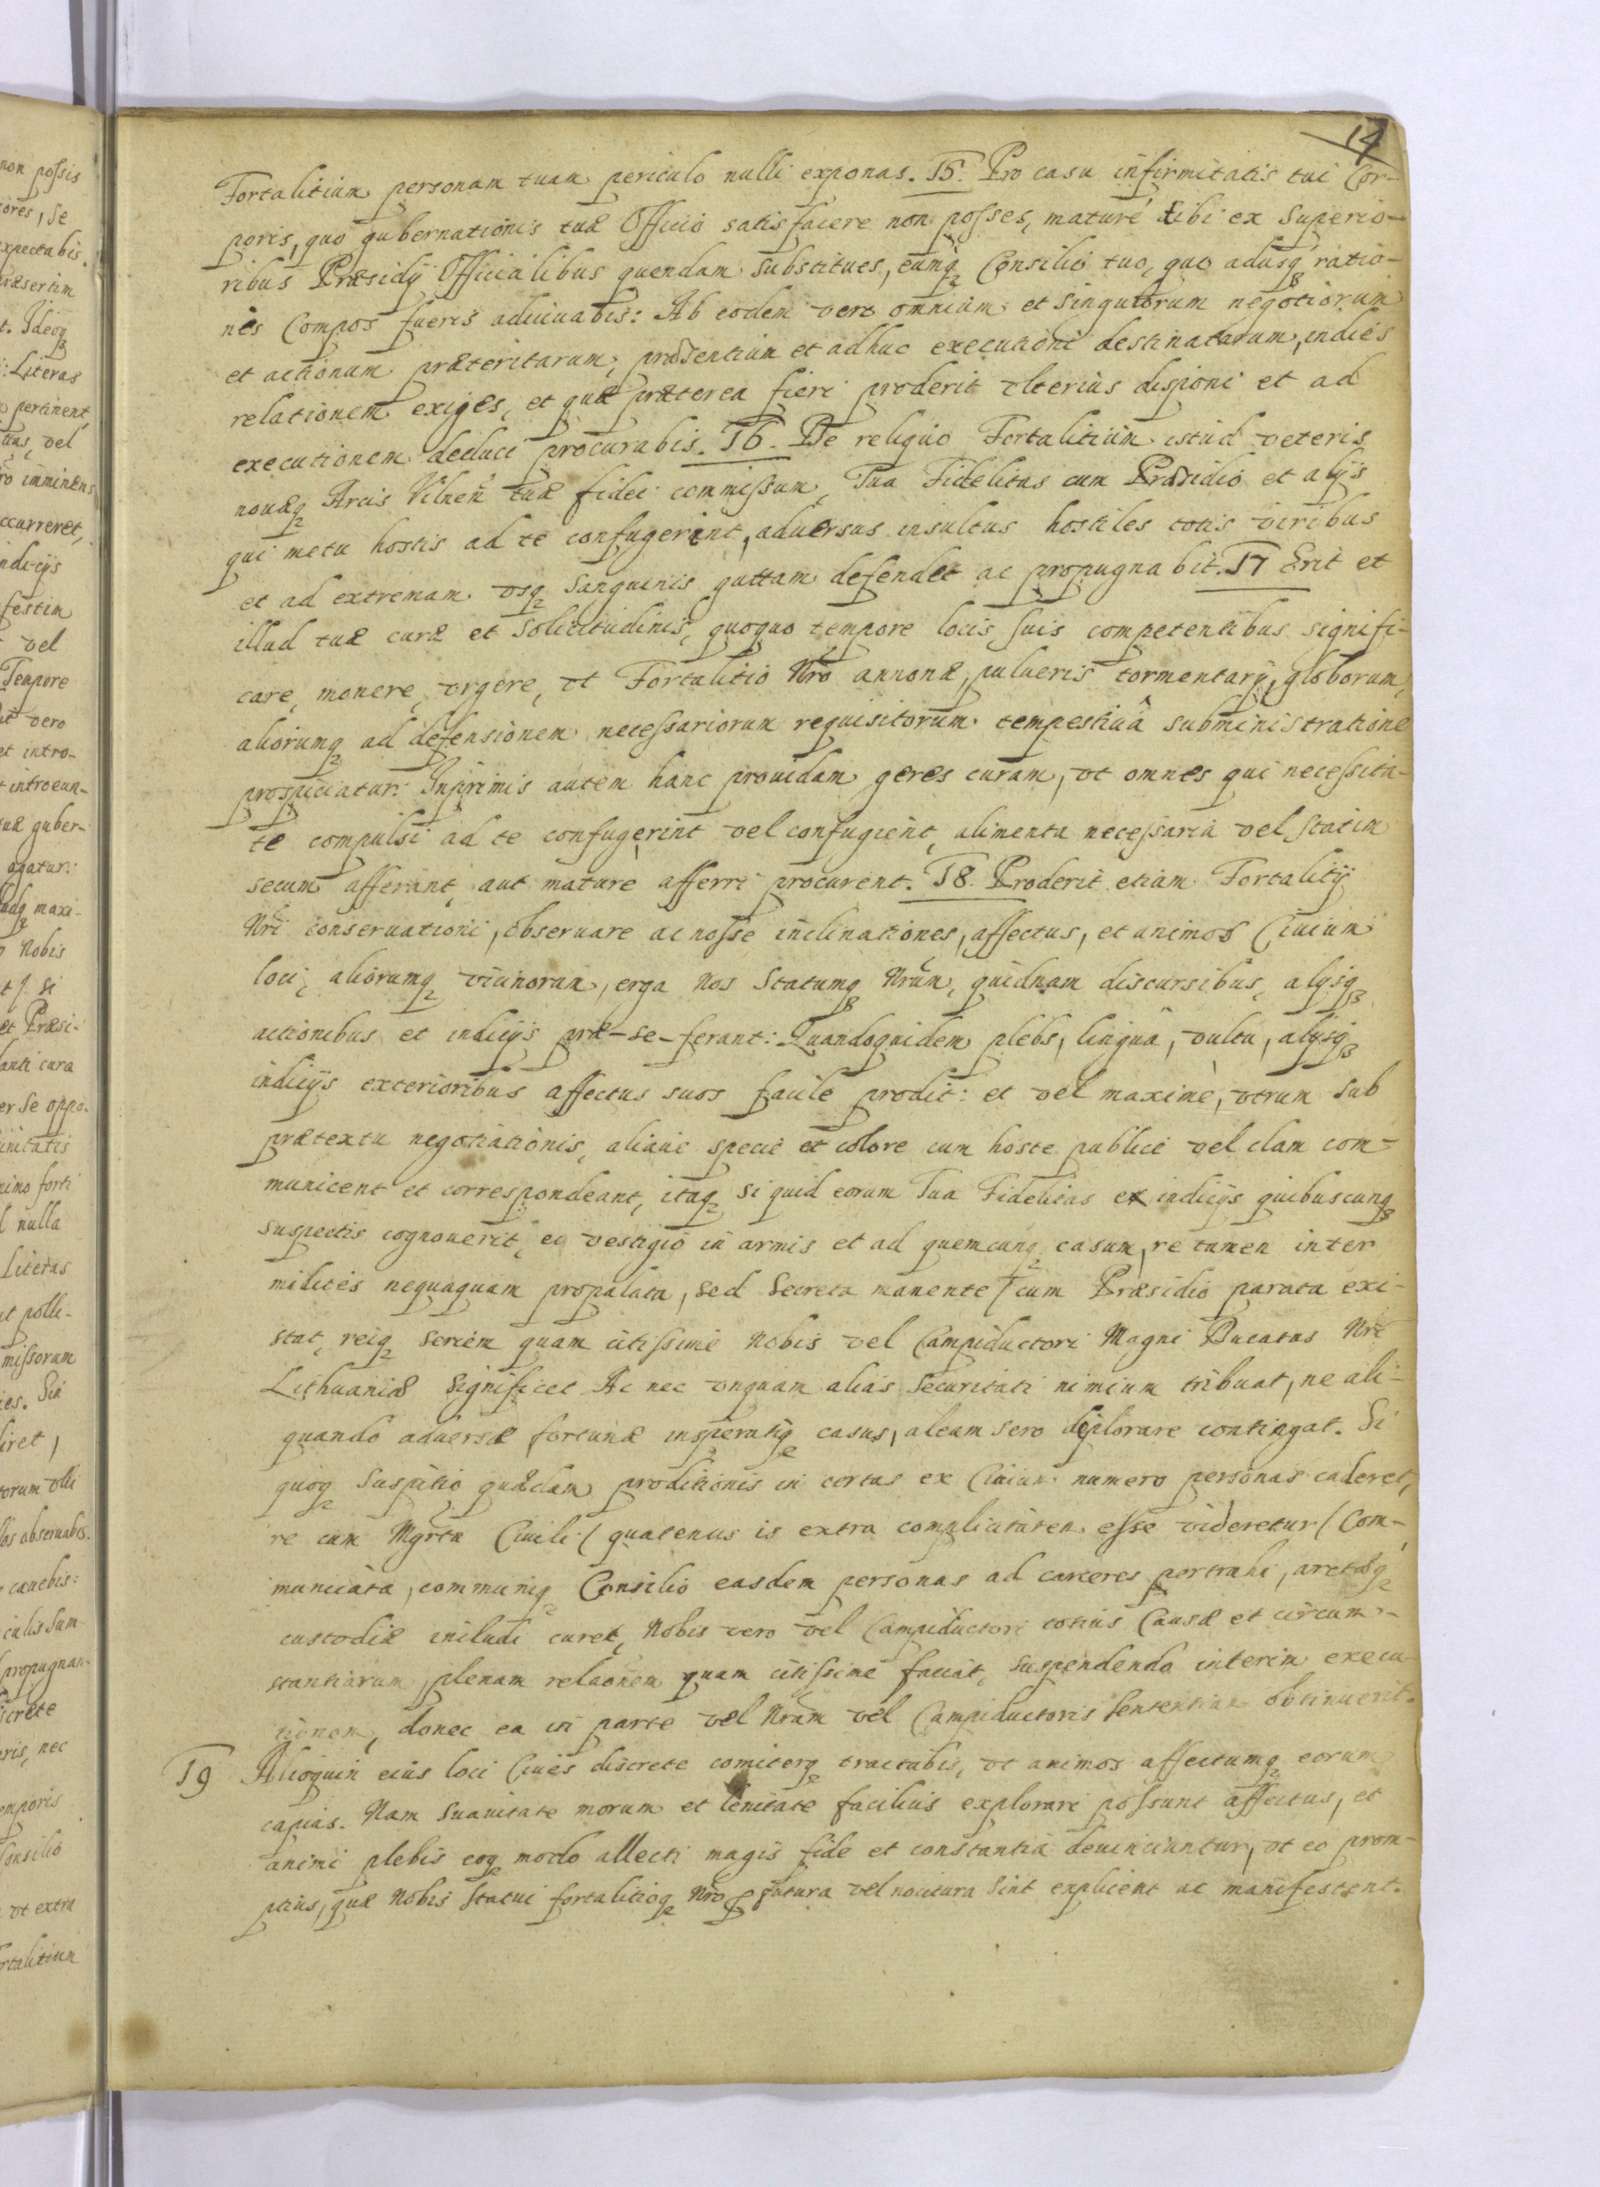 14
Fortalitium personam tuam periculo nulli exponas. 15. Pro casu infirmitatis tui Cor-
poris, quo gubernationis tuæ Officio satisfacere non posses, maturé, tibi ex Superio-
ribus Præsidÿ Officialibus quendam substitues, eumq Consilio tuo, quo adusq ratio-
nis Compos fueris adiuuabis: Ab eodem vero omnium et singulorum negotiorum
et actionum præteritarum, præsentium et adhuc executioni destinatarum, indies
relationem exiges, et quæ præterea fieri proderit vlterius disponi et ad
executionem deduci procurabis. 16. De reliquo Fortalitium istud veteris
nouæq Arcis Vilnen̄ tuæ fidei commissum, Tua Fidelitas cum Præsidio et alÿs
qui metu hostis ad te confugerint, aduersus insultus hostiles totis viribus
et ad extremam vsq sanguinis guttam defendet ac propugnabit. 17 Erit et
illud tuæ curæ et Solicitudinis, quoquo tempore locis suis competentibus signifi-
care, monere, vrgere, vt Fortalitio Nro annonæ, pulueris tormentarÿ, globorum,
aliorumq ad defensionem necessariorum requisitorum tempestiuâ subministratione
prospiciatur. Inprimis autem hanc prouidam geres curam, vt omnes qui necessita-
te compulsi ad te confugerint vel confugient, alimenta necessaria vel statim
secum afferant, aut mature afferri procurent. 18. Proderit etiam Fortalitÿ
Nri conseruationi, obseruare ac nosse inclinationes, affectus, et animos Ciuium
loci, aliorumq vicinorum, erga Nos Statumq Nrum, quidnam discursibus, alÿsq
actionibus et indicÿs præ-se-ferant: Quandoquidem plebs, linguâ, vultu, alÿsq
indicÿs exterioribus affectus suos facile prodit: et vel maximè, vtrum sub
prætextu negotiationis, aliaue specie et colore cum hoste publice vel clam com-
municent et correspondeant, itaq si quid eorum Tua Fidelitas ex indicÿs quibuscunq
suspectis cognouerit, eo vestigio in armis et ad quemcunq casum, re tamen inter
milites nequaquam propalata, sed secreta manente / cum Præsidio parata exi-
stat, reiq seriem quam citissime Nobis vel Campiductori Magni Ducatus Nri
Lithuaniæ significet Ac nec vnquam alias securitati nimium tribuat, ne ali-
quando aduersæ fortunæ insperatiq casus, aleam sero deplorare contingat. Si
quoq suspitio quædam proditionis in certas ex Ciuium numero personas caderet,
re cum Mgrtu Ciuili / quatenus is extra complicitatem esse videretur / Com-
municata, communiq Consilio easdem personas ad carceres pertrahi, arctæq
custodiæ includi curet, Nobis vero vel Campiductori totius Causæ et circum-
stantiarum plenam relaonem quam citissime faciat, suspendendo interim execu-
tionem, donec ea in parte vel Nram vel Campiductoris sententiam obtinuerit.
19 Alioquin eius loci Ciues discrete comiterq tractabis, vt animos affectumq eorum
capias. Nam suauitate morum et lenitate facilius explorari possunt affectus, et
animi plebis eoq modo allecti magis fide et constantia deuinciuntur, vt eo prom-
ptius, quæ Nobis Statui fortalitioq Nro futura vel nocitura sint explicent ac manifestent.